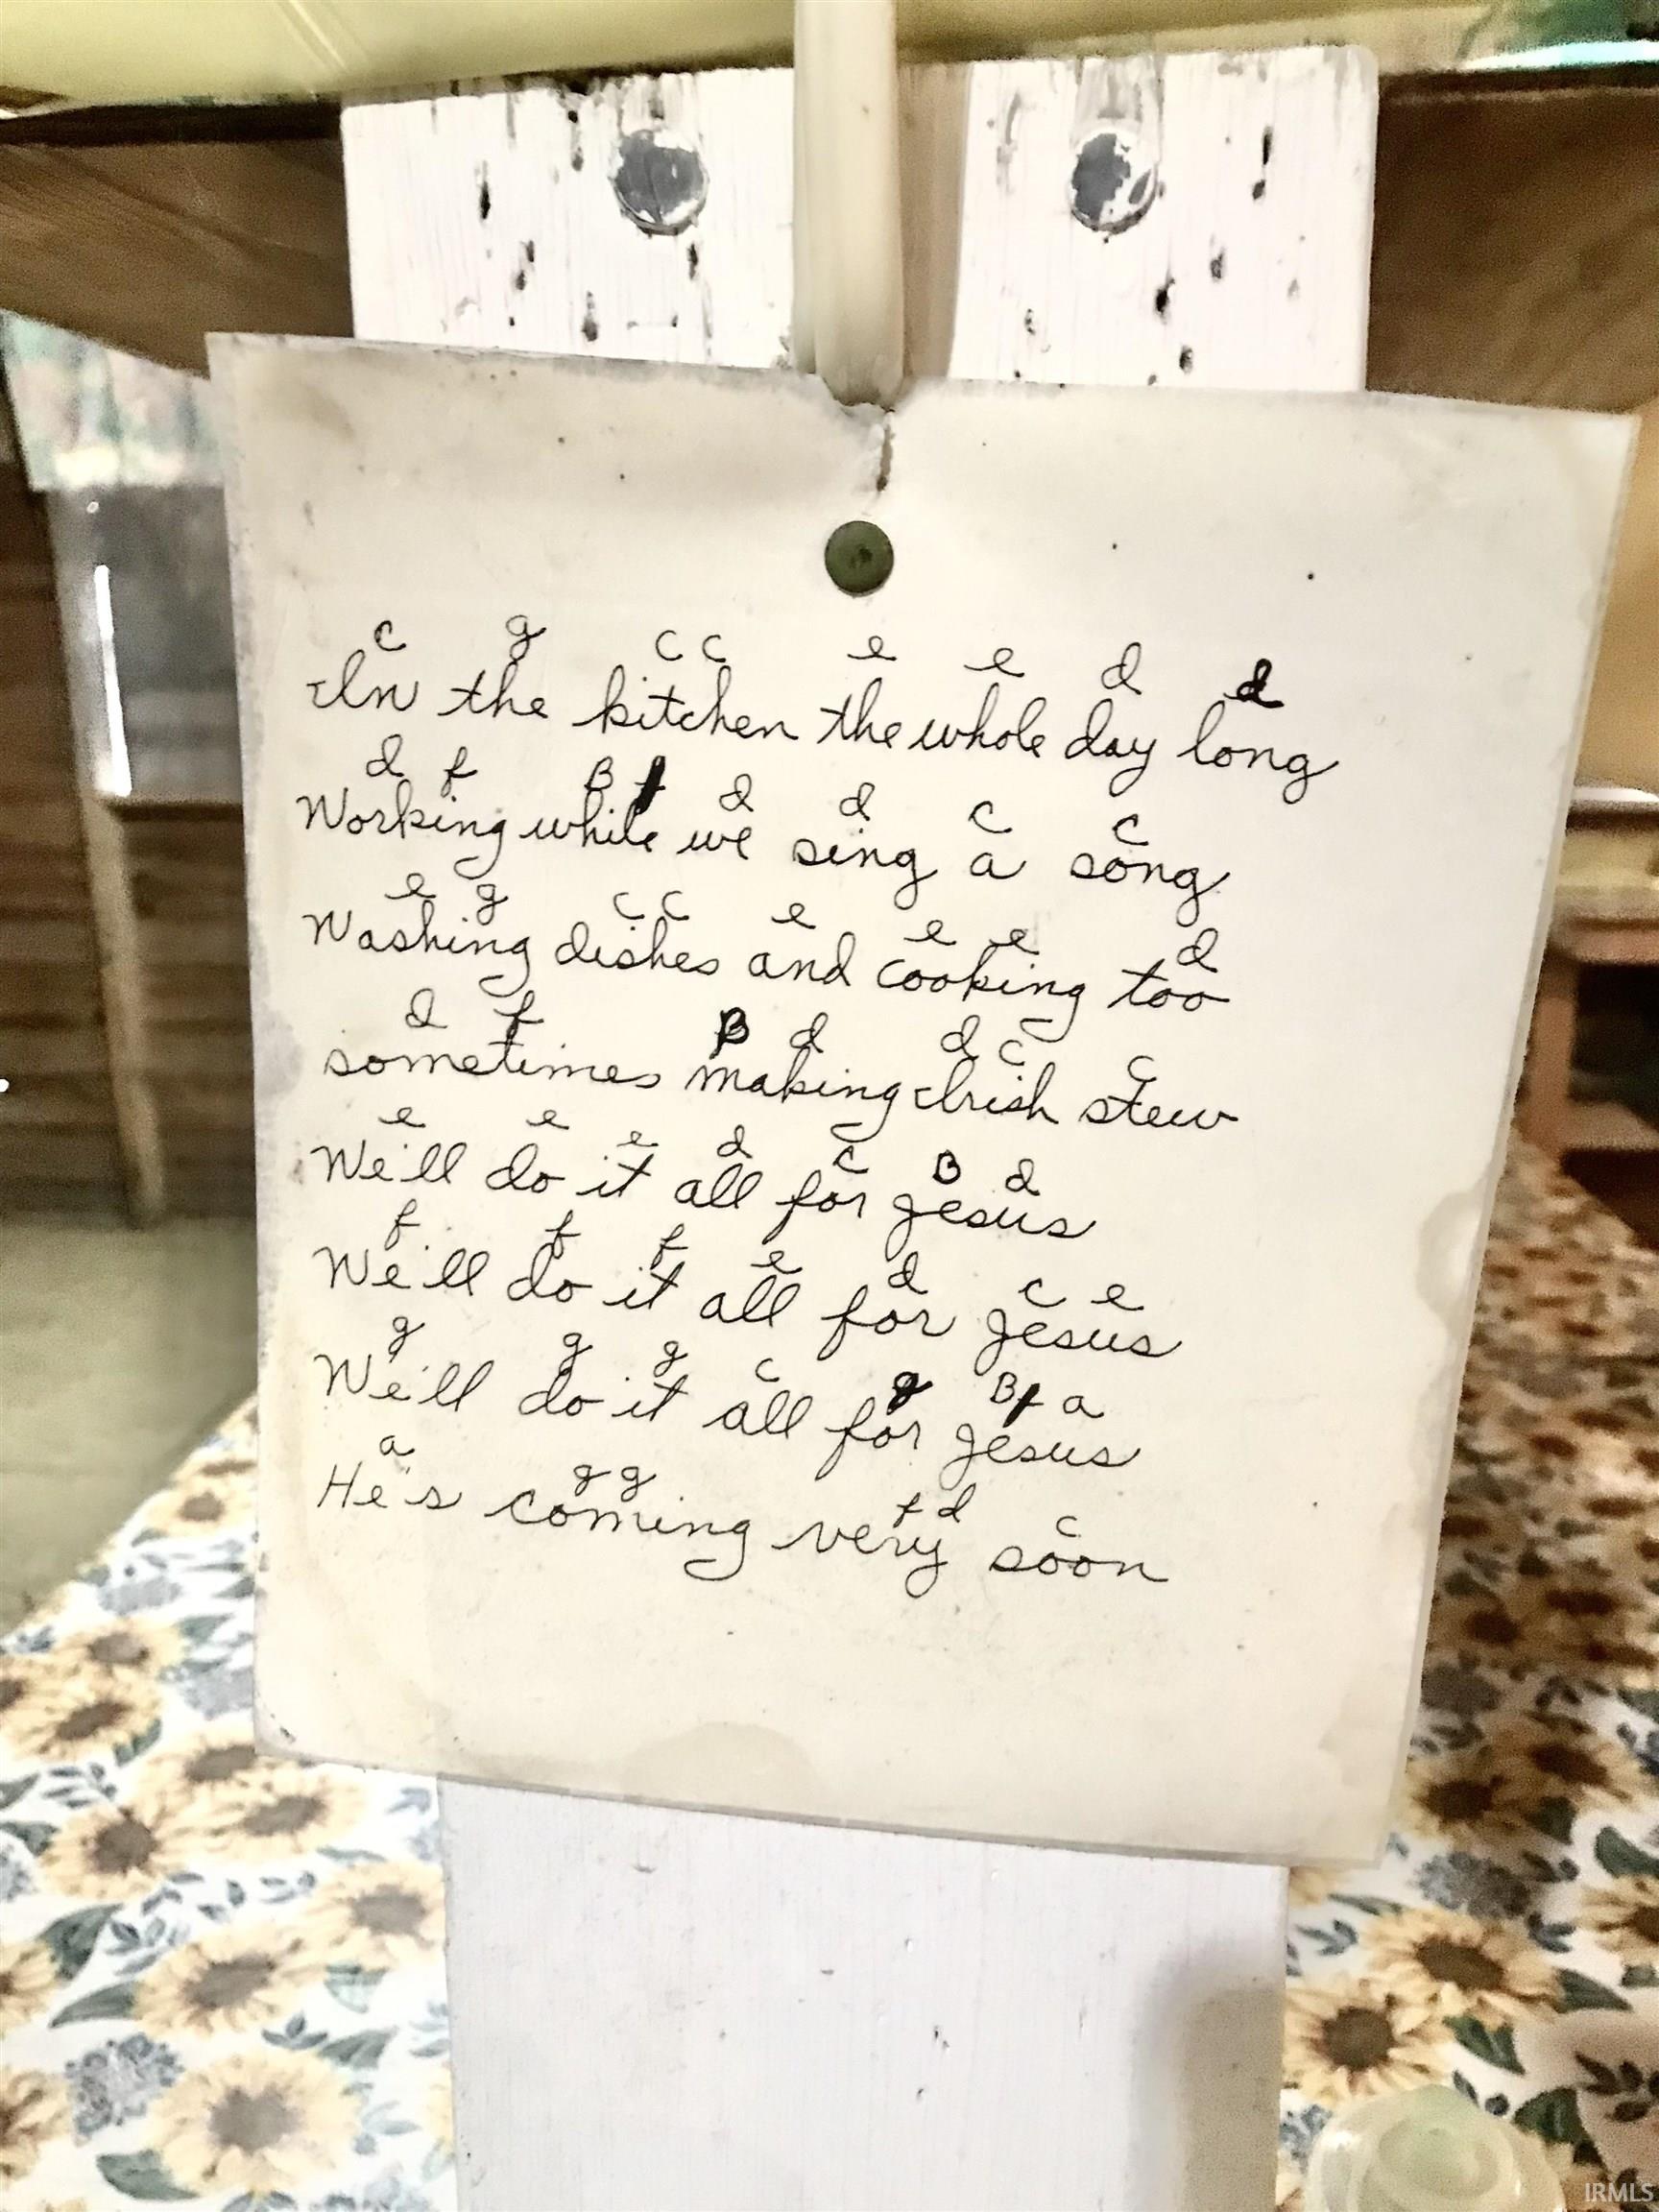 c g c c e e d d
In the kitchen the whole day long
d f B d d c c
Working while we sing a song
e g c c e e e d
Washing dishes and cooking too
d f B d d c c
sometimes making Irish stew
e e e d c B d
We'll do it all for Jesus
f f f e d c e
We'll do it all for Jesus
g g g c g B a
We'll do it all for Jesus
a g g f d c
He's coming very soon
IRMLS